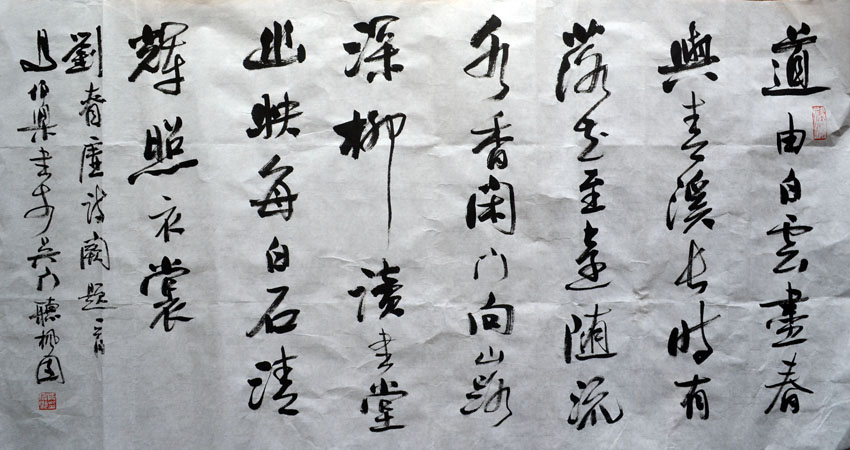 道由白雲盡春
與青溪長時有
落花至遠隨流
水香閑門向山路
深柳讀書堂
幽映每白石清
輝照衣裳
劉眘虛詩闕題一首
馬伯樂書於吳門聽楓園